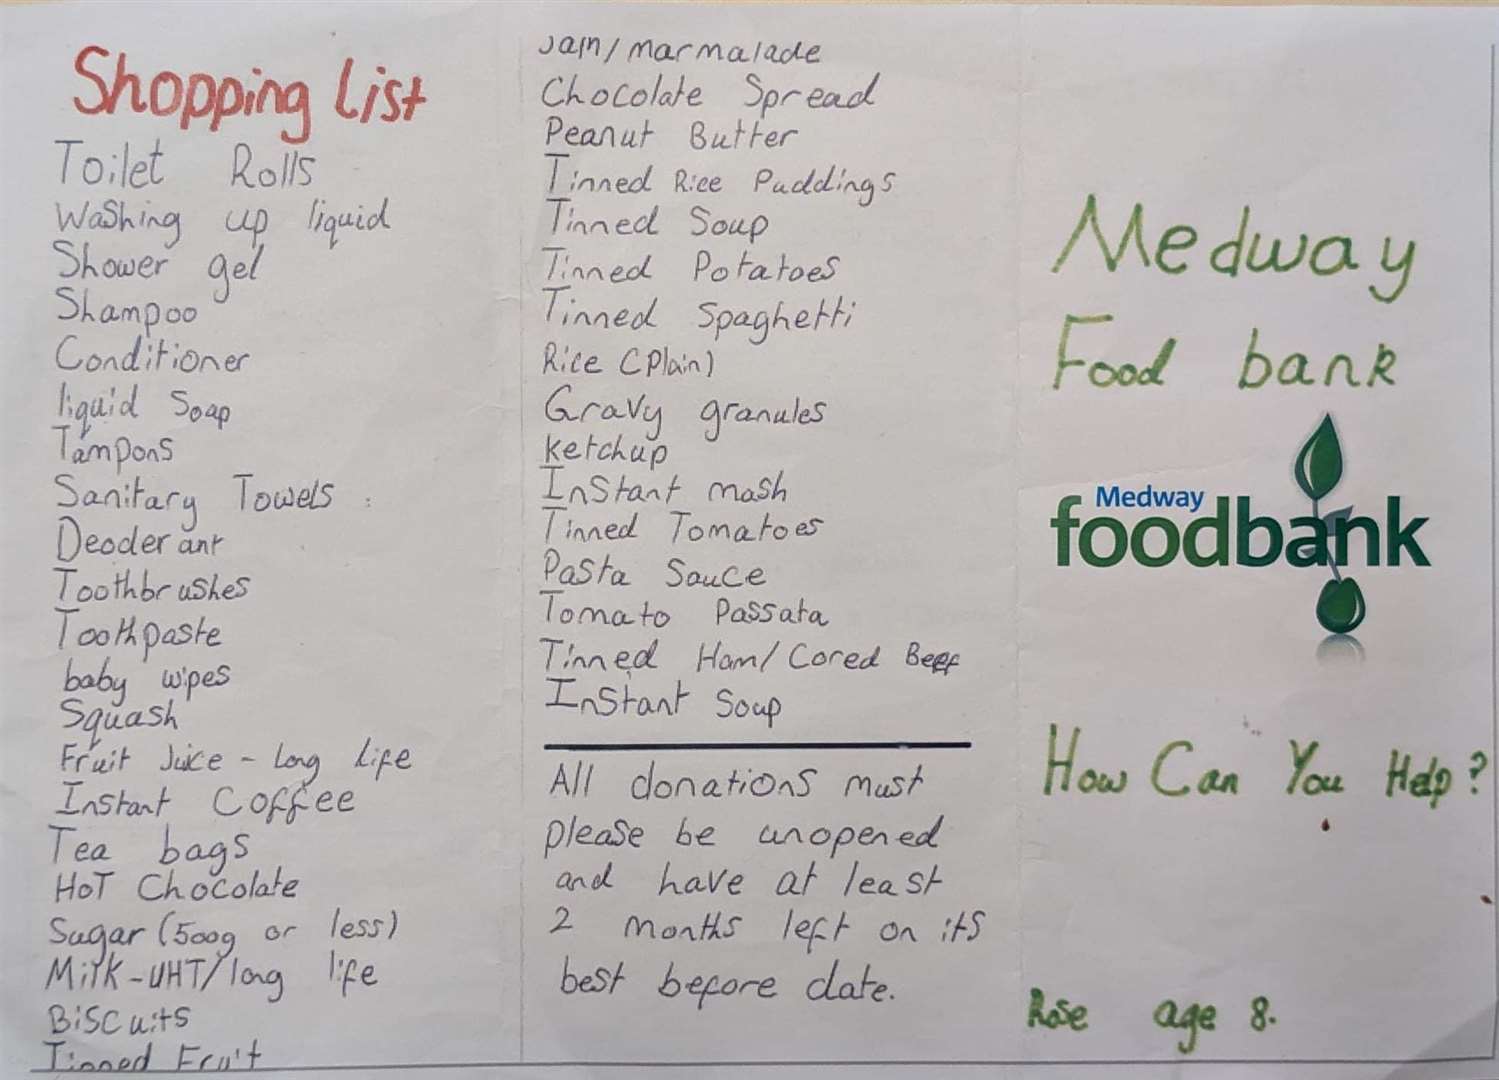 Shopping List
Toilet Rolls
Washing up liquid
Shower gel
Shampoo
Conditioner
liquid Soap
Tampons
Sanitary Towels
Deoderant
Toothbrushes
Toothpaste
baby wipes
Squash
Fruit Juice - Long life
Instant Coffee
Tea bags
Hot Chocolate
Sugar (500g or less)
Milk-UHT/long life
Biscuits
Tinned Fruit
Jam/marmalade
Chocolate Spread
Peanut Butter
Tinned Rice Puddings
Tinned Soup
Tinned Potatoes
Tinned Spaghetti
Rice (Plain)
Gravy granules
Ketchup
Instant mash
Tinned Tomatoes
Pasta Sauce
Tomato Passata
Tinned Ham/Cored Beef
Instant Soup
All donations must
please be unopened
and have at least
2 months left on its
best before date.
Medway
Food bank
Medway
foodbank
How Can You Help?
Rose age 8.